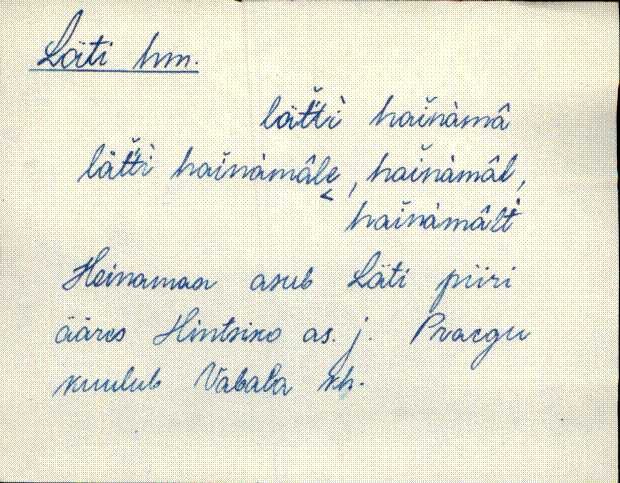 Läti hm.
lät̆t̆ì hain̆àmâ
lät̆t̆ì hain̆àmâle̬, hain̆àmâl,
hain̆àmâlt
Heinamaa asub Läti piiri
ääres Hintsiko as. j. Praegu
kuulub Vabala kh.